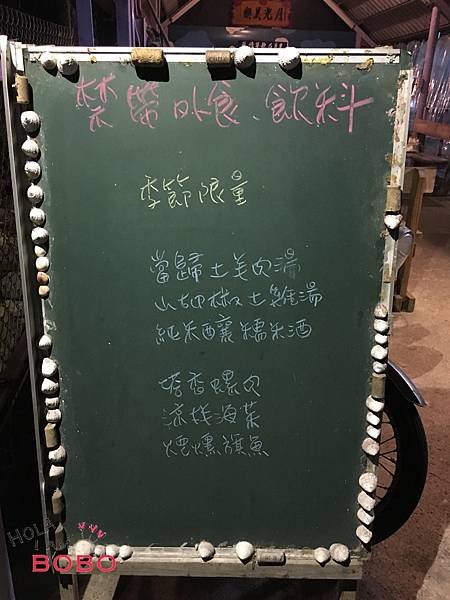 月光美樂
禁帶外食、飲料
季節限量
當歸土羊肉湯
山胡椒土雞湯
純米釀糯米酒
塔香螺肉
涼拌海菜
煙燻旗魚
HOLA
BOBO